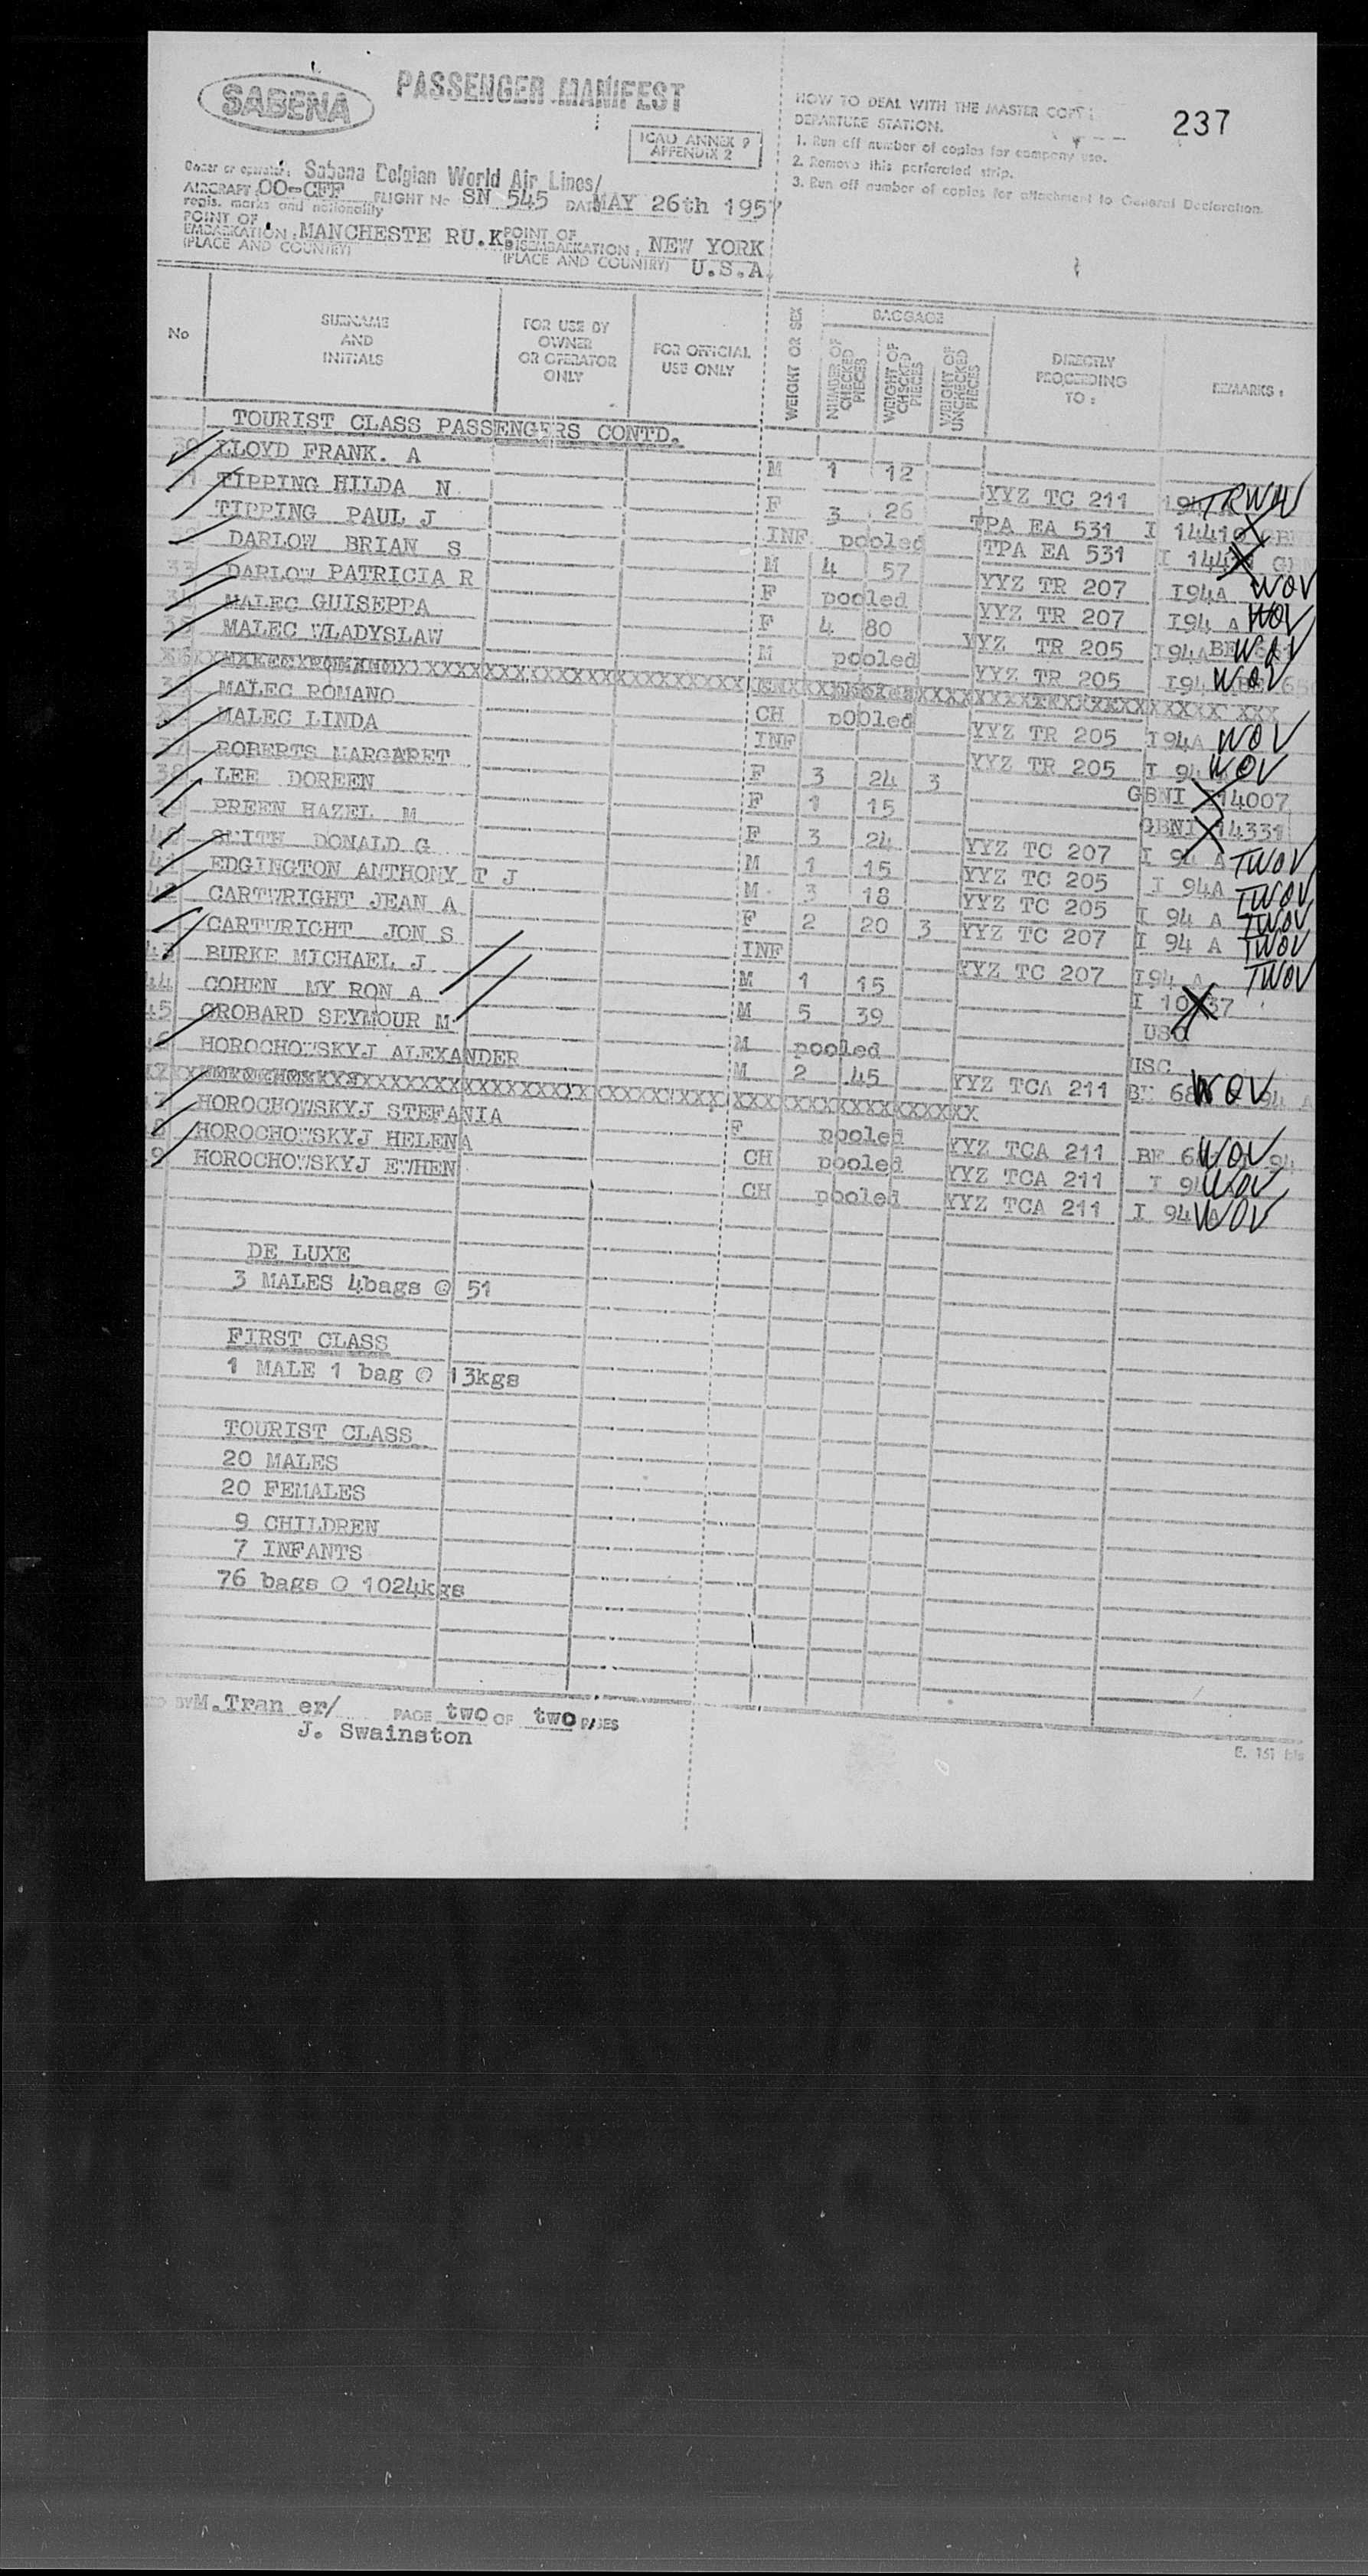 SABENA
PASSENGER MANIFEST
ICAO ANNEX 9
APPENDIX 2
HOW TO DEAL WITH THE MASTER COPY:
DEPARTURE STATION.
1. Run off number of copies for company use.
2. Remove this perforated strip.
3. Run off number of copies for attachment to General Declaration.
237
Owner or operator: Sabena Belgian World Air Lines/
AIRCRAFT OO-CFF FLIGHT No SN 545 DATE MAY 26th 1957
regis. marks and nationality
POINT OF EMBARKATION: MANCHESTE RU.K POINT OF DISEMBARKATION: NEW YORK
(PLACE AND COUNTRY) (PLACE AND COUNTRY) U.S.A.
No SURNAME AND INITIALS FOR USE BY OWNER OR OPERATOR ONLY FOR OFFICIAL USE ONLY WEIGHT OR SEX BAGGAGE NUMBER OF CHECKED PIECES WEIGHT OF CHECKED PIECES WEIGHT OF UNCHECKED PIECES DIRECTLY PROCEEDING TO: REMARKS:
TOURIST CLASS PASSENGERS CONTD.
30 LLOYD FRANK. A M 1 12 YYZ TC 211 I94 TRWOV
31 TIPPING HILDA N F 3 26 TPA EA 531 I 14410 X
TIPPING PAUL J INF pooled TPA EA 531 I X
32 DARLOW BRIAN S M 4 57 YYZ TR 207 I94A WOV
33 DARLOW PATRICIA R F pooled YYZ TR 207 I94 A WOV
34 MALEC GUISEPPA F 4 80 YYZ TR 205 I94A WOV
35 MALEC WLADYSLAW M pooled YYZ TR 205 I94 WOV
36 MALEC ROMANO CH pooled YYZ TR 205 I94A WOV
MALEC LINDA INF YYZ TR 205 I 94 WOV
37 ROBERTS MARGARET F 3 24 3 GBNI X 14007
38 LEE DOREEN F 1 15 GBNI X 14331
39 PREEN HAZEL M F 3 24 YYZ TC 207 I 94 A TWOV
40 SMITH DONALD G M 1 15 YYZ TC 205 I 94A TWOV
41 EDGINGTON ANTHONY T J M 3 18 YYZ TC 205 I 94 A TWOV
42 CARTWRIGHT JEAN A F 2 20 3 YYZ TC 207 I 94 A TWOV
CARTWRIGHT JON S INF YYZ TC 207 I94 A TWOV
43 BURKE MICHAEL J M 1 15 I 10 X 37
44 COHEN MY RON A M 5 39 USC
45 GROBARD SEYMOUR M M pooled USC
46 HOROCHOWSKYJ ALEXANDER M 2 45 YYZ TCA 211 BE 68 WOV 94 A
47 HOROCHOWSKYJ STEFANIA F pooled YYZ TCA 211 BE 6 WOV 94
48 HOROCHOWSKYJ HELENA CH pooled YYZ TCA 211 I 94 WOV
49 HOROCHOWSKYJ EWHEN CH pooled YYZ TCA 211 I 94 A WOV
DE LUXE
3 MALES 4bags @ 51
FIRST CLASS
1 MALE 1 bag @ 13kgs
TOURIST CLASS
20 MALES
20 FEMALES
9 CHILDREN
7 INFANTS
76 bags @ 1024kgs
BY M.Tran er/ PAGE two OF two PAGES
J. Swainston
E. 151 bis